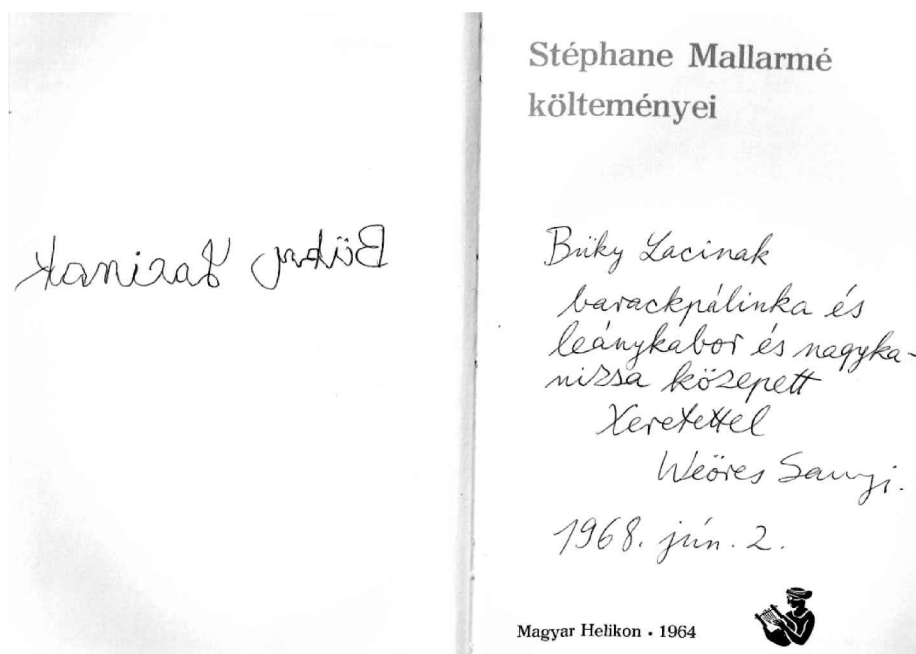 Büky Lacinak
Stéphane Mallarmé
költeményei
Büky Lacinak
barackpálinka és
leánykabor és nagyka-
nizsa közepett
Xeretettel
Weöres Sanyi.
1968. jún. 2.
Magyar Helikon • 1964